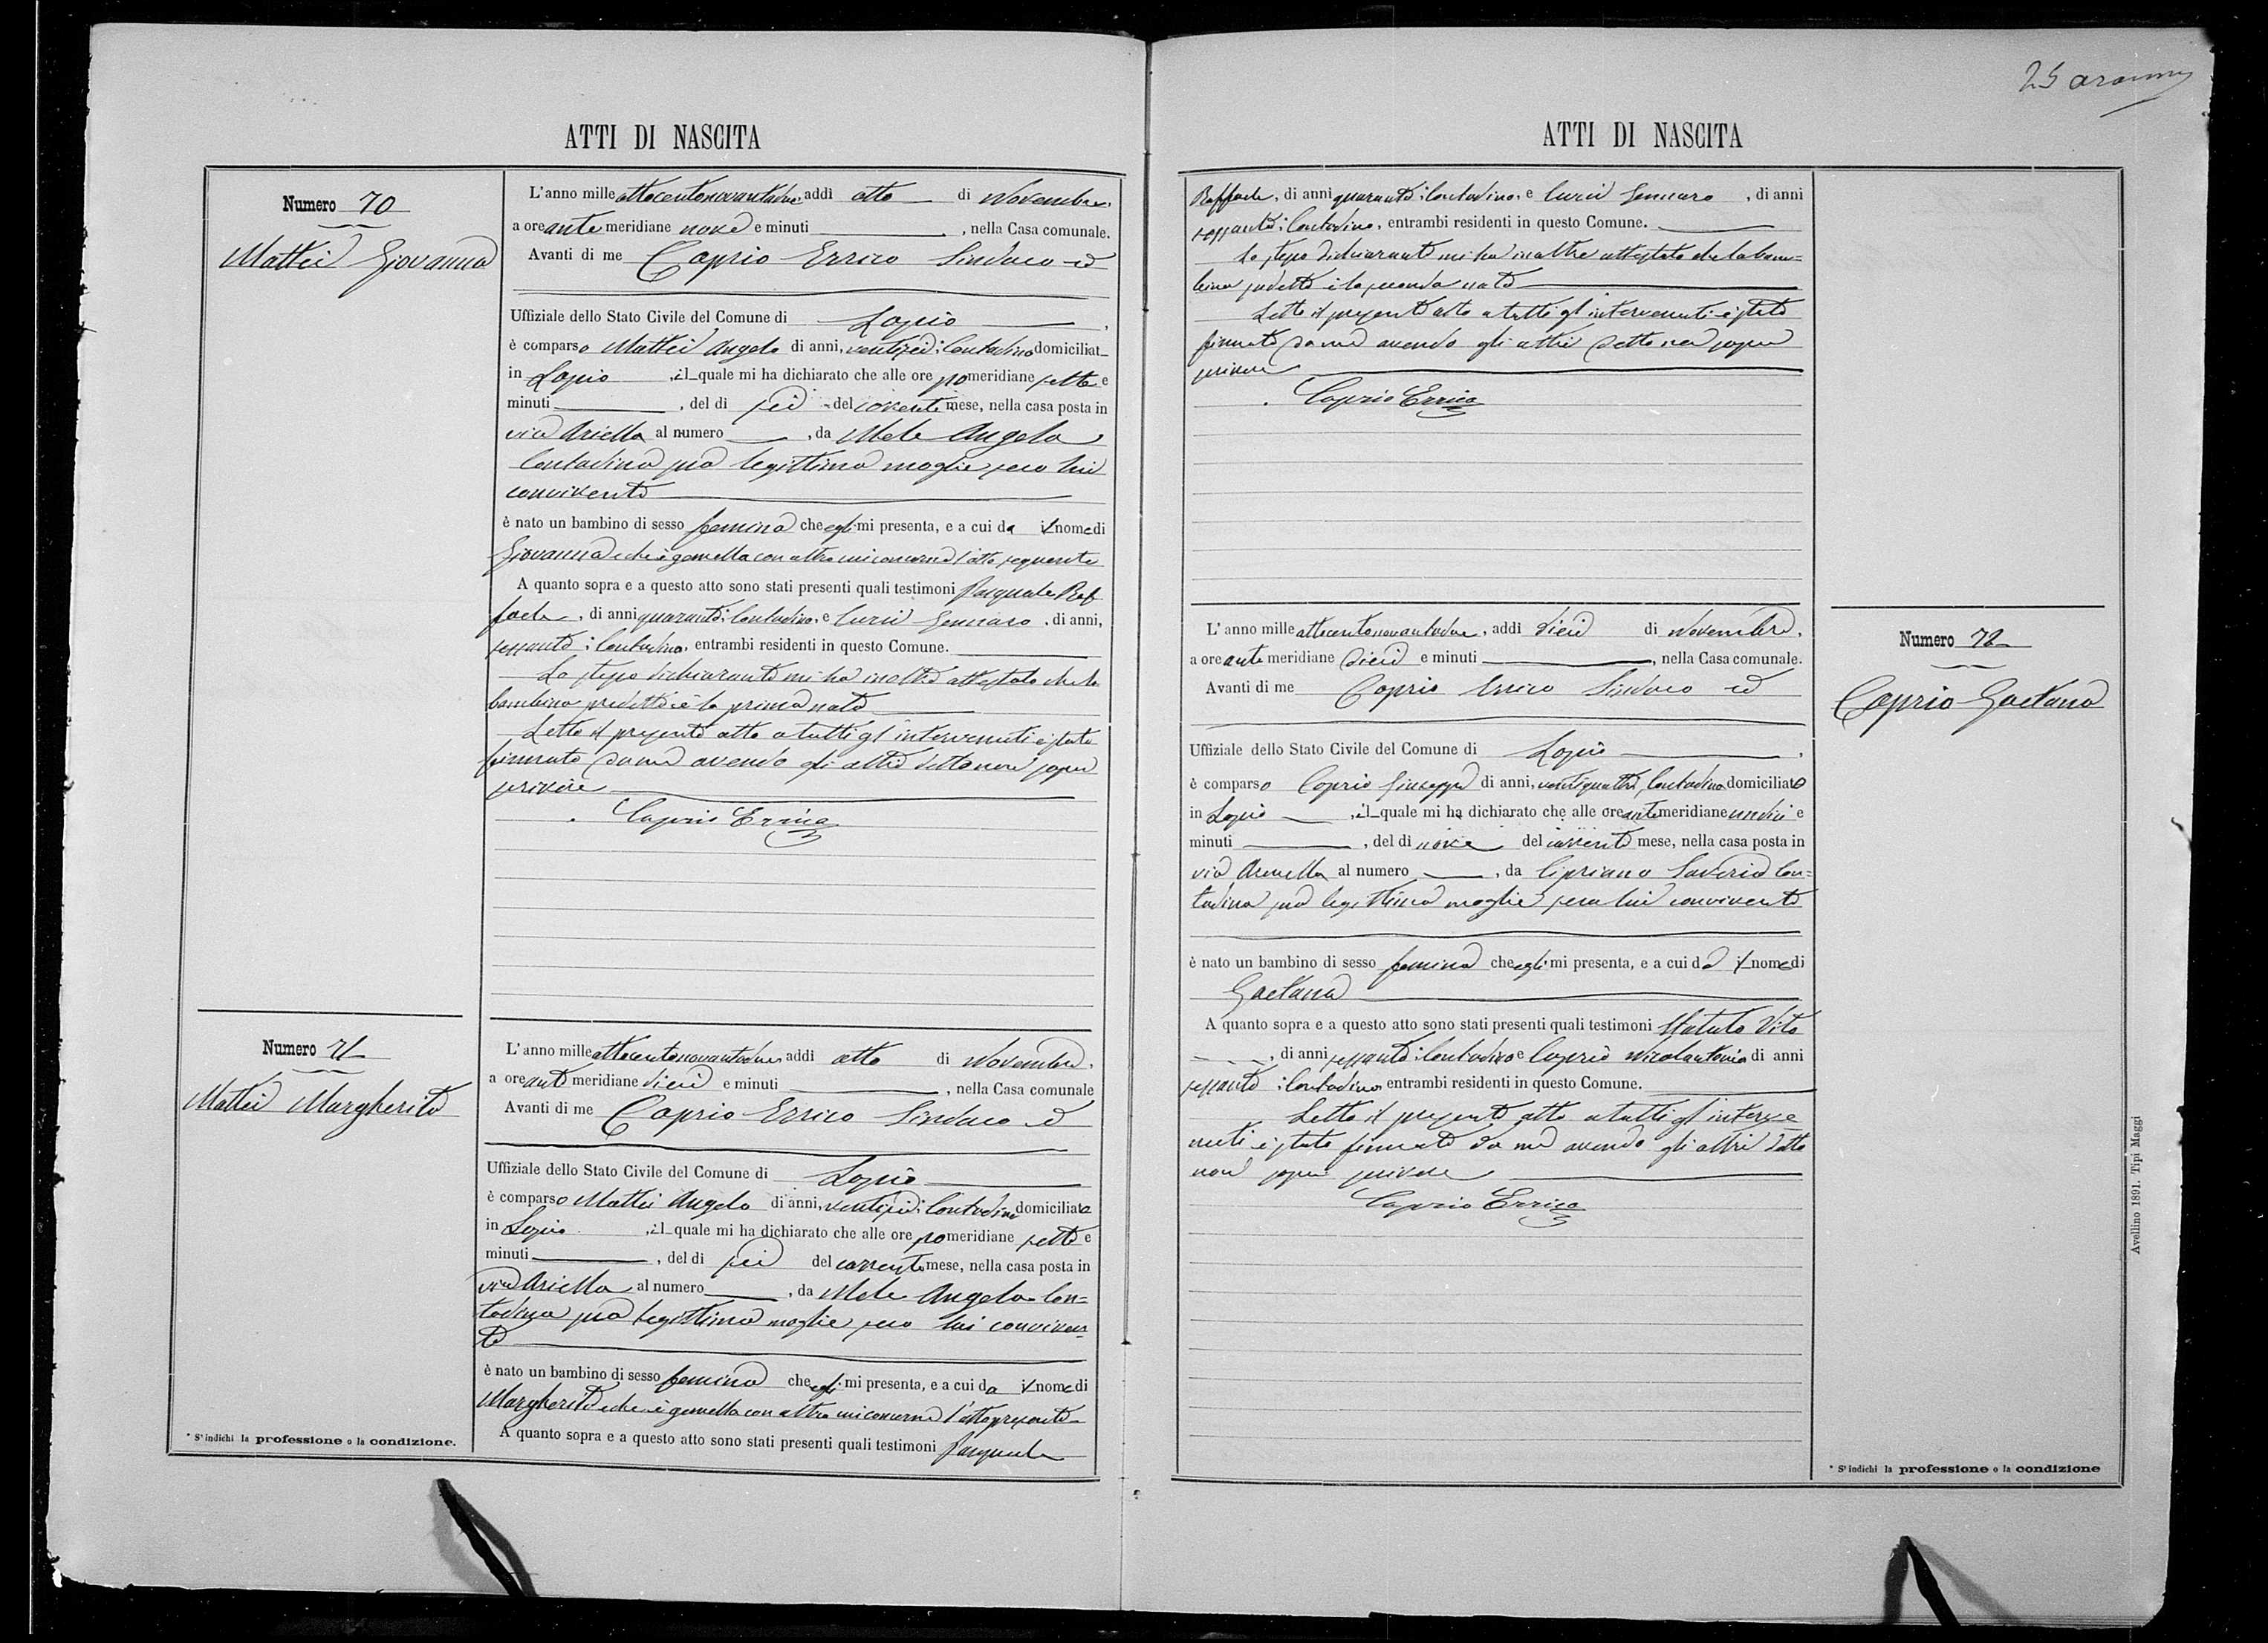 ATTI DI NASCITA
Numero 70
Mattei Giovanna
L'anno mille ottocentonovantadue, addì otto di Novembre,
a ore ante meridiane nove e minuti , nella Casa comunale.
Avanti di me Caprio Errico Sindaco ed
Uffiziale dello Stato Civile del Comune di Lapio ,
è comparso Mattei Angelo di anni, ventisei; Contadino domiciliat
in Lapio , il quale mi ha dichiarato che alle ore pomeridiane sette e
minuti , del dì sei del corrente mese, nella casa posta in
via Ariella al numero , da Mele Angela
Contadina sua legittima moglie seco lui
convivente
è nato un bambino di sesso femina che egli mi presenta, e a cui da il nome di
Giovanna e che è gemella con altra cui concerne l'atto seguente
A quanto sopra e a questo atto sono stati presenti quali testimoni Pasquale Raf
faele, di anni quaranta; Contadino, e Gennaro, di anni,
sessanta; Contadino, entrambi residenti in questo Comune.
Lo stesso dichiarante mi ha inoltre attestato che la
bambina predetta è la prima nata
Letto il presente atto a tutti gl'intervenuti è stato
firmato da me avendo gli altri detto non saper
scrivere
Caprio Errico
Numero 71
Mattei Margherita
L'anno mille ottocentonovantadue, addì otto di Novembre,
a ore ante meridiane dieci e minuti , nella Casa comunale
Avanti di me Caprio Errico Sindaco ed
Uffiziale dello Stato Civile del Comune di Lapio
è comparso Mattei Angelo di anni, ventisei; Contadino domiciliato
in Lapio , il quale mi ha dichiarato che alle ore pomeridiane sette e
minuti , del dì sei del corrente mese, nella casa posta in
via Ariella al numero , da Mele Angela Con=
tadina sua legittima moglie seco lui conviven
te
è nato un bambino di sesso femina che egli mi presenta, e a cui da il nome di
Margherita e che è gemella con altra cui concerne l'atto
A quanto sopra e a questo atto sono stati presenti quali testimoni Pasquale
* S'indichi la professione o la condizione.
ATTI DI NASCITA
Raffaele, di anni quaranta; Contadino, e Gennaro, di anni
sessanta; Contadino, entrambi residenti in questo Comune.
Lo stesso dichiarante mi ha inoltre attestato che la bam=
bina è la seconda nata
Letto il presente atto a tutti gl'intervenuti è stato
firmato da me avendo gli altri detto non saper
scrivere
Caprio Errico
Numero 72
Caprio Gaetana
L'anno mille ottocentonovantadue, addì dieci di Novembre,
a ore ante meridiane dieci e minuti , nella Casa comunale.
Avanti di me Caprio Errico Sindaco ed
Uffiziale dello Stato Civile del Comune di Lapio .
è comparso Caprio Giuseppe di anni, ventiquattro, Contadino domiciliato
in Lapio , il quale mi ha dichiarato che alle ore antemeridiane undici e
minuti , del dì nove del corrente mese, nella casa posta in
via al numero , da Cipriano Saveria Con=
tadina sua legittima moglie seco lui convivente
è nato un bambino di sesso femina che egli mi presenta, e a cui da il nome di
Gaetana
A quanto sopra e a questo atto sono stati presenti quali testimoni Vito
, di anni sessanta; Contadino e Caprio Nicolantonio di anni
sessanta; Contadino, entrambi residenti in questo Comune.
Letto il presente atto a tutti gl'interve
nuti è stato firmato da me avendo gli altri detto
non saper scrivere
Caprio Errico
* S'indichi la professione o la condizione
Avellino 1891. Tipi Maggi